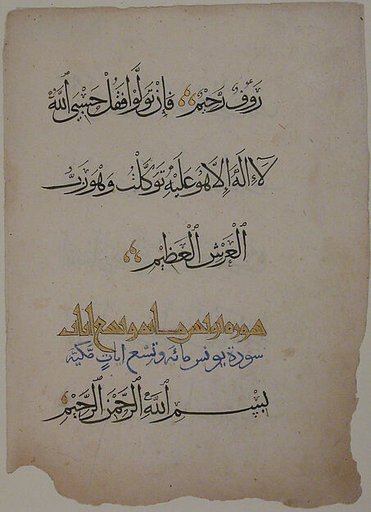 رَءُوفٌ رَحِيمٌ فَإِنْ تَوَلَّوْا فَقُلْ حَسْبِيَ اللَّهُ
لَا إِلَهَ إِلَّا هُوَ عَلَيْهِ تَوَكَّلْتُ وَهُوَ رَبُّ
الْعَرْشِ الْعَظِيمِ
سورة يونس مائة وتسع آيات
سورة يونس مائة وتسع آيات مكية
بِسْمِ اللَّهِ الرَّحْمَنِ الرَّحِيمِ